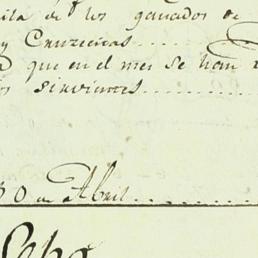 de los ganados de
y Cruzecitas
que en el mes se han
sirvientes
30 de Abril